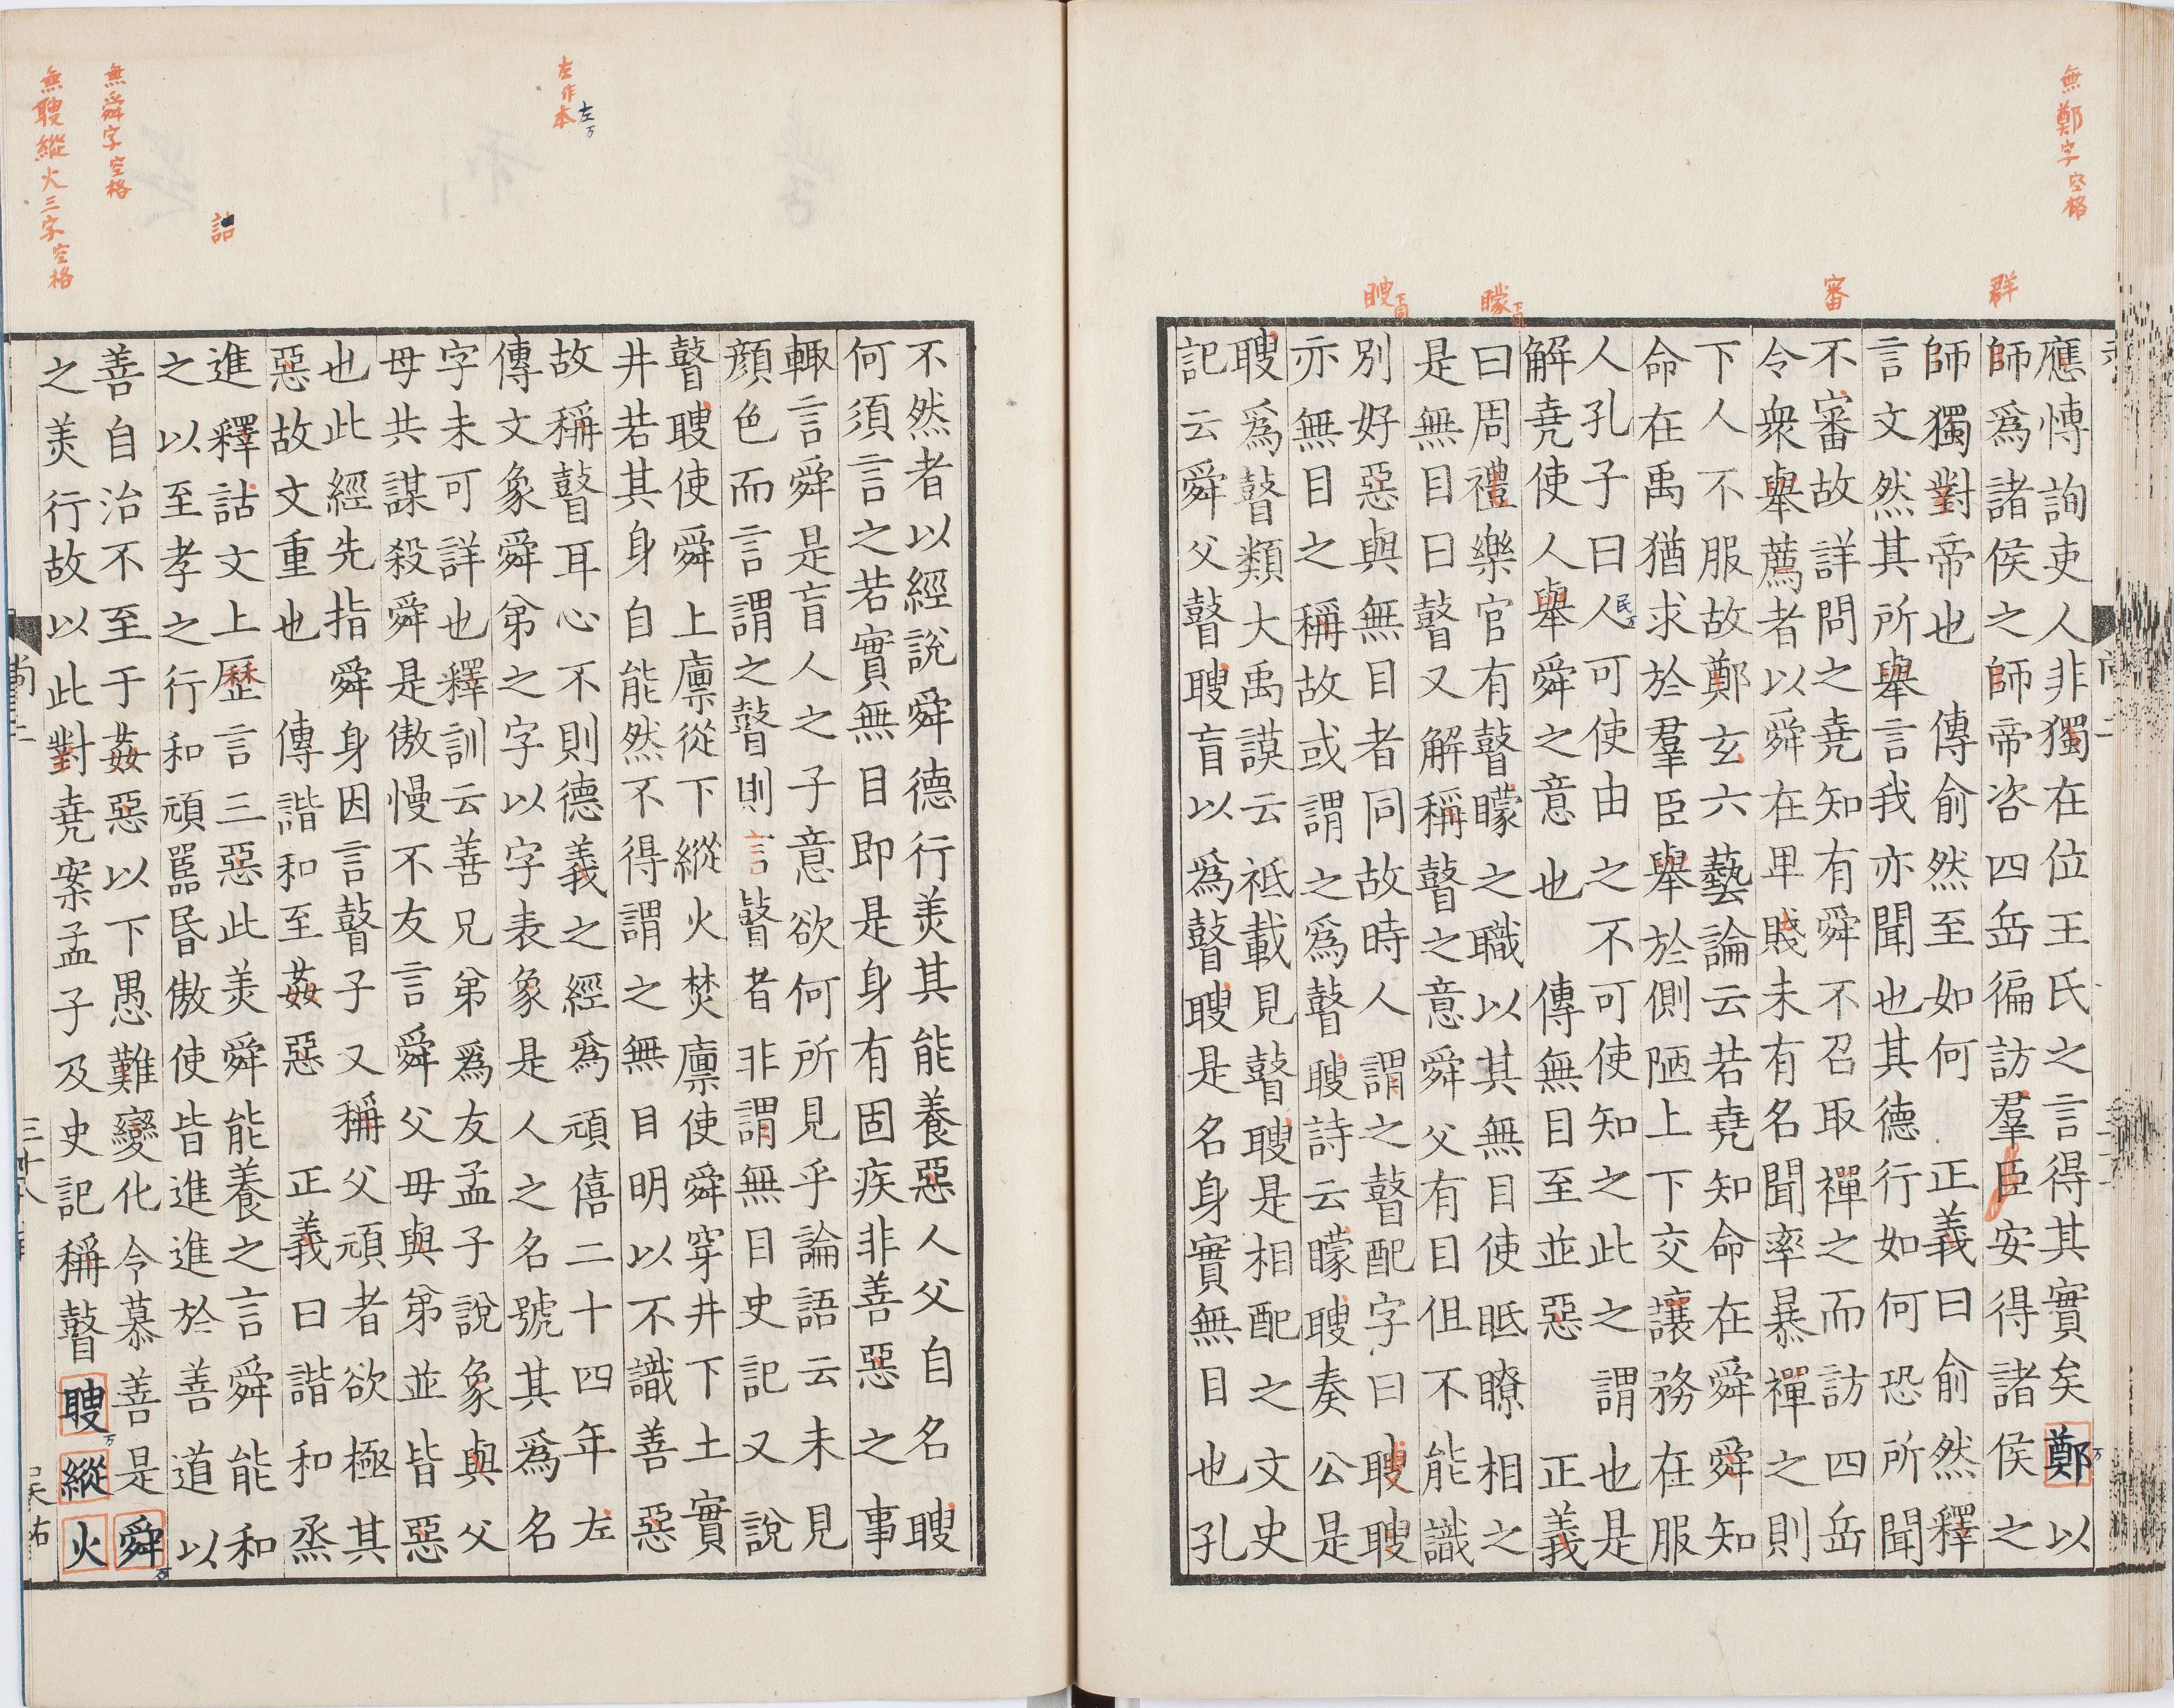 無鄭字空格
群
審
矇下同
瞍下同
應愽詢吏人非獨在位王氏之言得其實矣鄭以
師爲諸侯之師帝咨四岳徧訪羣臣安得諸侯之
師獨對帝也　傳俞然至如何　正義曰俞然釋
言文然其所舉言我亦聞也其德行如何恐所聞
不審故詳問之堯知有舜不召取禪之而訪四岳
令衆舉薦者以舜在卑賤未有名聞率暴禪之則
下人不服故鄭玄六藝論云若堯知命在舜舜知
命在禹猶求於羣臣舉於側陋上下交讓務在服
人孔子曰人可使由之不可使知之此之謂也是
解堯使人舉舜之意也　傳無目至並惡　正義
曰周禮樂官有瞽矇之職以其無目使眡瞭相之
是無目曰瞽又解稱瞽之意舜父有目但不能識
別好惡與無目者同故時人謂之瞽配字曰瞍瞍
亦無目之稱故或謂之爲瞽瞍詩云矇瞍奏公是
瞍爲瞽類大禹謨云祗載見瞽瞍是相配之文史
記云舜父瞽瞍盲以爲瞽瞍是名身實無目也孔
民万
万
左作本
左万
詁
無舜字空格
無瞍縱火三字空格
不然者以經說舜德行美其能養惡人父自名瞍
何須言之若實無目即是身有固疾非善惡之事
輙言舜是盲人之子意欲何所見乎論語云未見
顏色而言謂之瞽則言瞽者非謂無目史記又說
瞽瞍使舜上廩從下縱火焚廩使舜穿井下土實
井若其身自能然不得謂之無目明以不識善惡
故稱瞽耳心不則德義之經爲頑僖二十四年左
傳文象舜弟之字以字表象是人之名號其爲名
字未可詳也釋訓云善兄弟爲友孟子說象與父
母共謀殺舜是傲慢不友言舜父母與弟並皆惡
也此經先指舜身因言瞽子又稱父頑者欲極其
惡故文重也　傳諧和至姦惡　正義曰諧和烝
進釋詁文上歷言三惡此美舜能養之言舜能和
之以至孝之行和頑嚚昏傲使皆進進於善道以
善自治不至于姦惡以下愚難變化令慕善是舜
之美行故以此對堯案孟子及史記稱瞽瞍縱火
万
万
尚二
三十八
吴祐